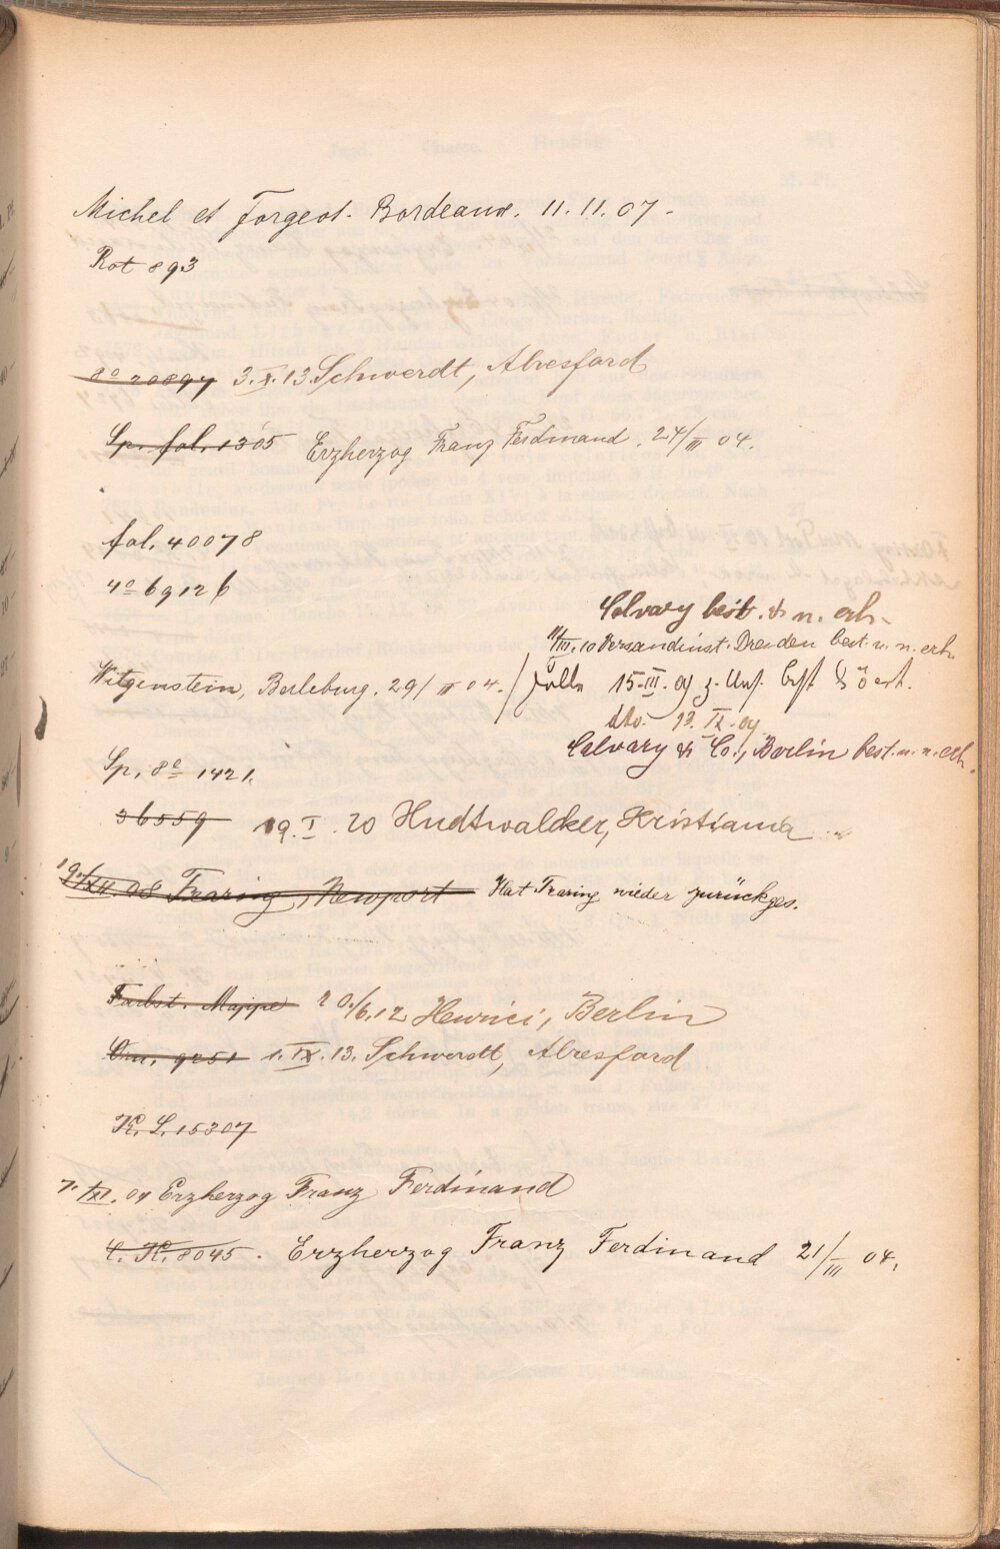 Michel et Forgeot. Bordeaux. 11.11.07.
Rot 893
8º 20897 3.X.13. Schwerdt, Alresford
Sp. fol. 1305 Erzherzog Franz Ferdinand. 24/III 04.
fol. 40078
4º 6912 b
Calvary best. & n. erh.
11/III. 10 Versandinst. Dresden best. u. n. erh.
Witgenstein, Berleburg. 29/III 04. / 15.III.09 z. Ans.
dto. 13.IX.09
Calvary & Co., Berlin best. u. n. erh.
Sp. 8º 1421.
36559 19.I.20 Hudtwalcker, Kristiania
19/XII.08 Fearing, Newport Hat Fearing wieder zurückges.
Farbst. Mappe 20./6.12 Henrici, Berlin
Orn. 9251 1.IX.13. Schwerdt, Alresford
K. S. 15307
7.XI.04 Erzherzog Franz Ferdinand
C. K. 8045. Erzherzog Franz Ferdinand 21/III 04.